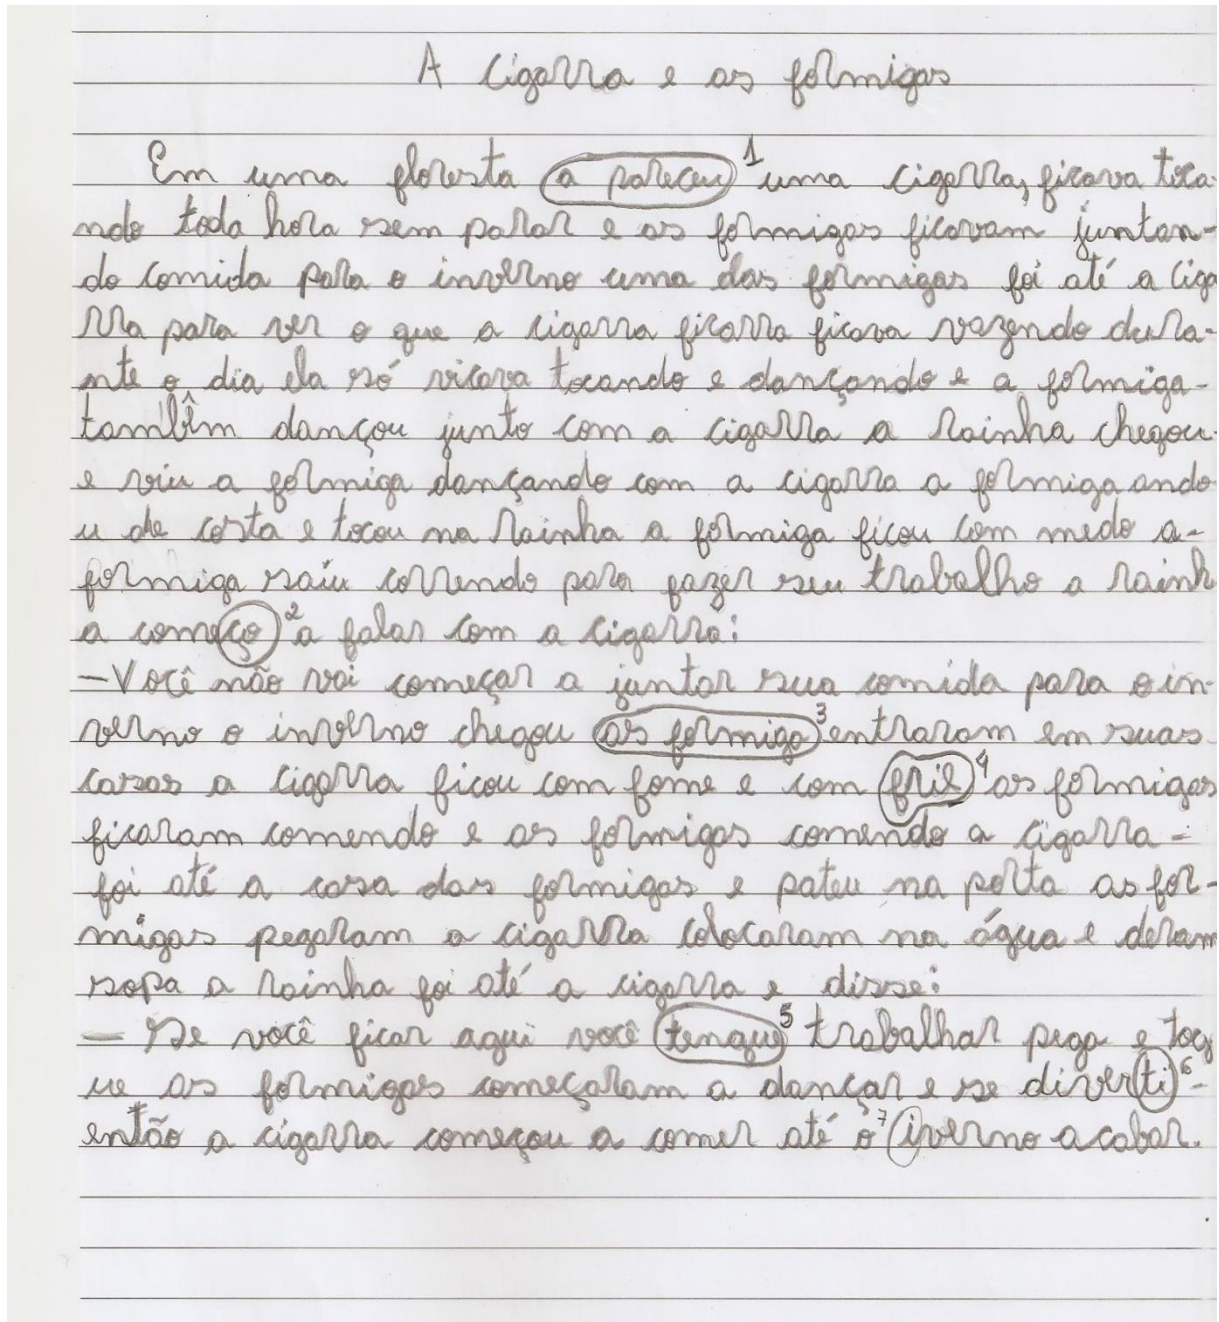 A cigarra e as formigas
Em uma floresta a pareceu 1 uma cigarra, ficava toca-
ndo toda hora sem parar e as formigas ficavam juntan-
do comida para o inverno uma das formigas foi até a ciga
rra para ver o que a cigarra ficarra ficava vazendo dura-
nte o dia ela só vicava tocando e dançando e a formiga-
tambêm dançou junto com a cigarra a rainha chegou-
e viu a formiga dançando com a cigarra a formiga ando
u de costa e tocou na rainha a formiga ficou com medo a-
formiga saiu correndo para fazer seu trabalho a rainh
a começo 2 a falar com a cigarra:
-Você não vai começar a juntar sua comida para o in-
verno o inverno chegou as formiga 3 entraram em suas
casas a cigarra ficou com fome e com frie 4 as formigas
ficaram comendo e as formigas comendo a cigarra -
foi até a casa das formigas e pateu na porta as for-
migas pegaram a cigarra colocaram na água e deram
sopa a rainha foi até a cigarra e disse:
- Se você ficar aqui você tenque 5 trabalhar pega e toq
ue as formigas começaram a dançar e se diverti 6 -
então a cigarra começou a comer até o 7 iverno acabar.